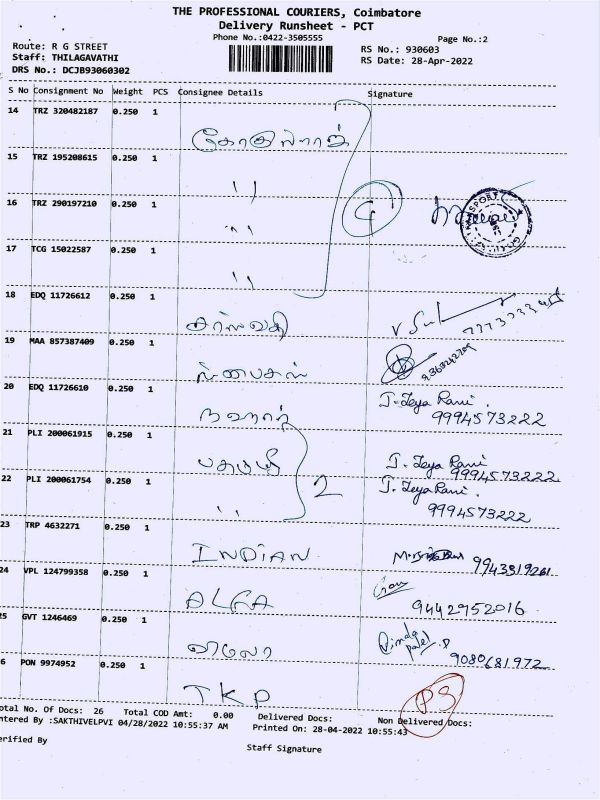 THE PROFESSIONAL COURIERS, Coimbatore
Delivery Runsheet - PCT
Phone No.:0422-3505555
Page No.:2
Route: R G STREET
Staff: THILAGAVATHI
DRS No.: DCJB93060302
RS No.: 930603
RS Date: 28-Apr-2022
S No Consignment No Weight PCS Consignee Details Signature
14 TRZ 320482187 0.250 1
15 TRZ 195208615 0.250 1
"
16 TRZ 290197210 0.250 1
"
17 TCG 15022587 0.250 1
"
18 EDQ 11726612 0.250 1
சரஸ்வதி
19 MAA 857387409 0.250 1
20 EDQ 11726610 0.250 1
J. Jeya Rani.
9994573222
21 PLI 200061915 0.250 1
J. Jeya Rani
9994573222
22 PLI 200061754 0.250 1
2
J. Jeya Rani.
"
9994573222
23 TRP 4632271 0.250 1
INDIAN
24 VPL 124799358 0.250 1
ALFA 9442952016
25 GVT 1246469 0.250 1
9080681972
26 PON 9974952 0.250 1
TKP
PS
Total No. Of Docs: 26 Total COD Amt: 0.00 Delivered Docs: Non Delivered Docs:
Entered By :SAKTHIVELPVI 04/28/2022 10:55:37 AM Printed On: 28-04-2022 10:55:43
Verified By
Staff Signature